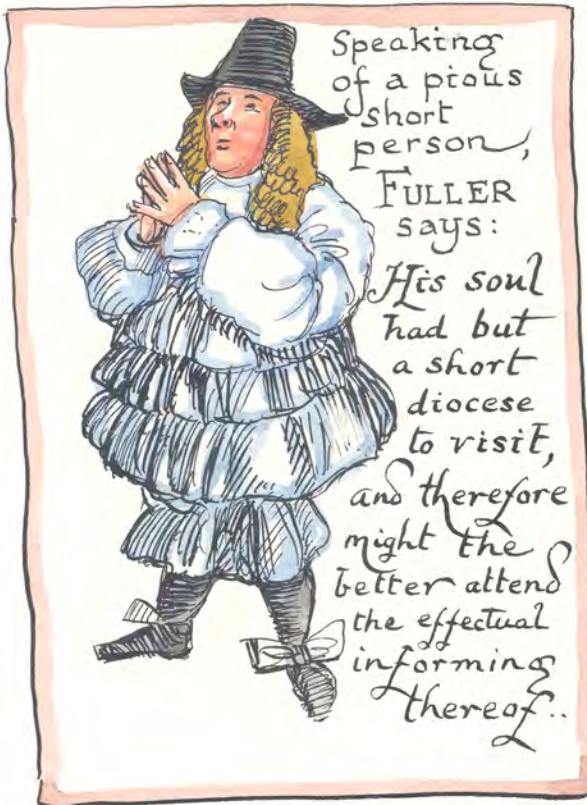 Speaking
of a pious
short
person,
FULLER
says:
His soul
had but
a short
diocese
to visit,
and therefore
might the
better attend
the effectual
informing
thereof..